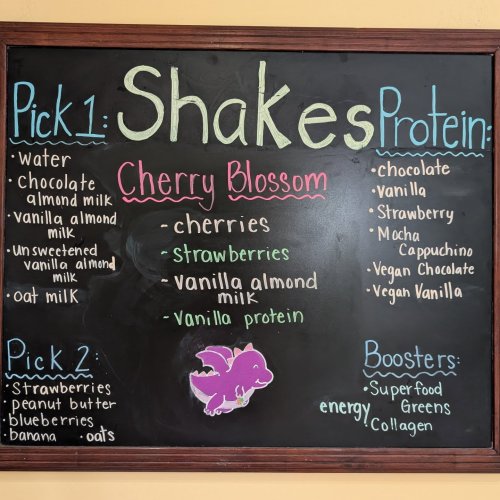 Shakes
Pick 1:
• Water
• Chocolate
almond milk
• vanilla almond
milk
• unsweetened
vanilla almond
milk
• oat milk
Pick 2:
• Strawberries
• peanut butter
• blueberries
• banana • oats
Cherry Blossom
- cherries
- Strawberries
- Vanilla almond
milk
- Vanilla protein
Protein:
• chocolate
• Vanilla
• Strawberry
• Mocha
Cappuchino
• Vegan Chocolate
• Vegan Vanilla
Boosters:
• Superfood
energy Greens
• Collagen